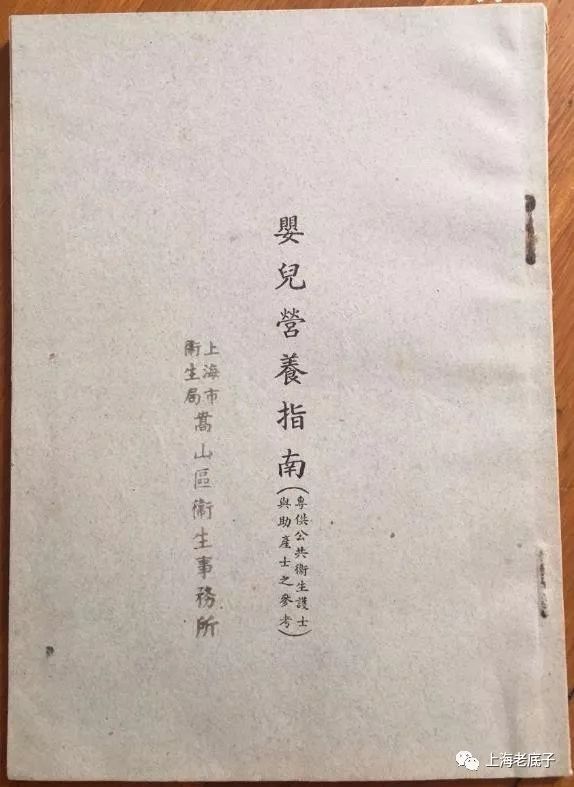 嬰兒營養指南
(專供公共衞生護士
與助產士之參考)
上海市
衞生局
嵩山區衞生事務所
上海老底子